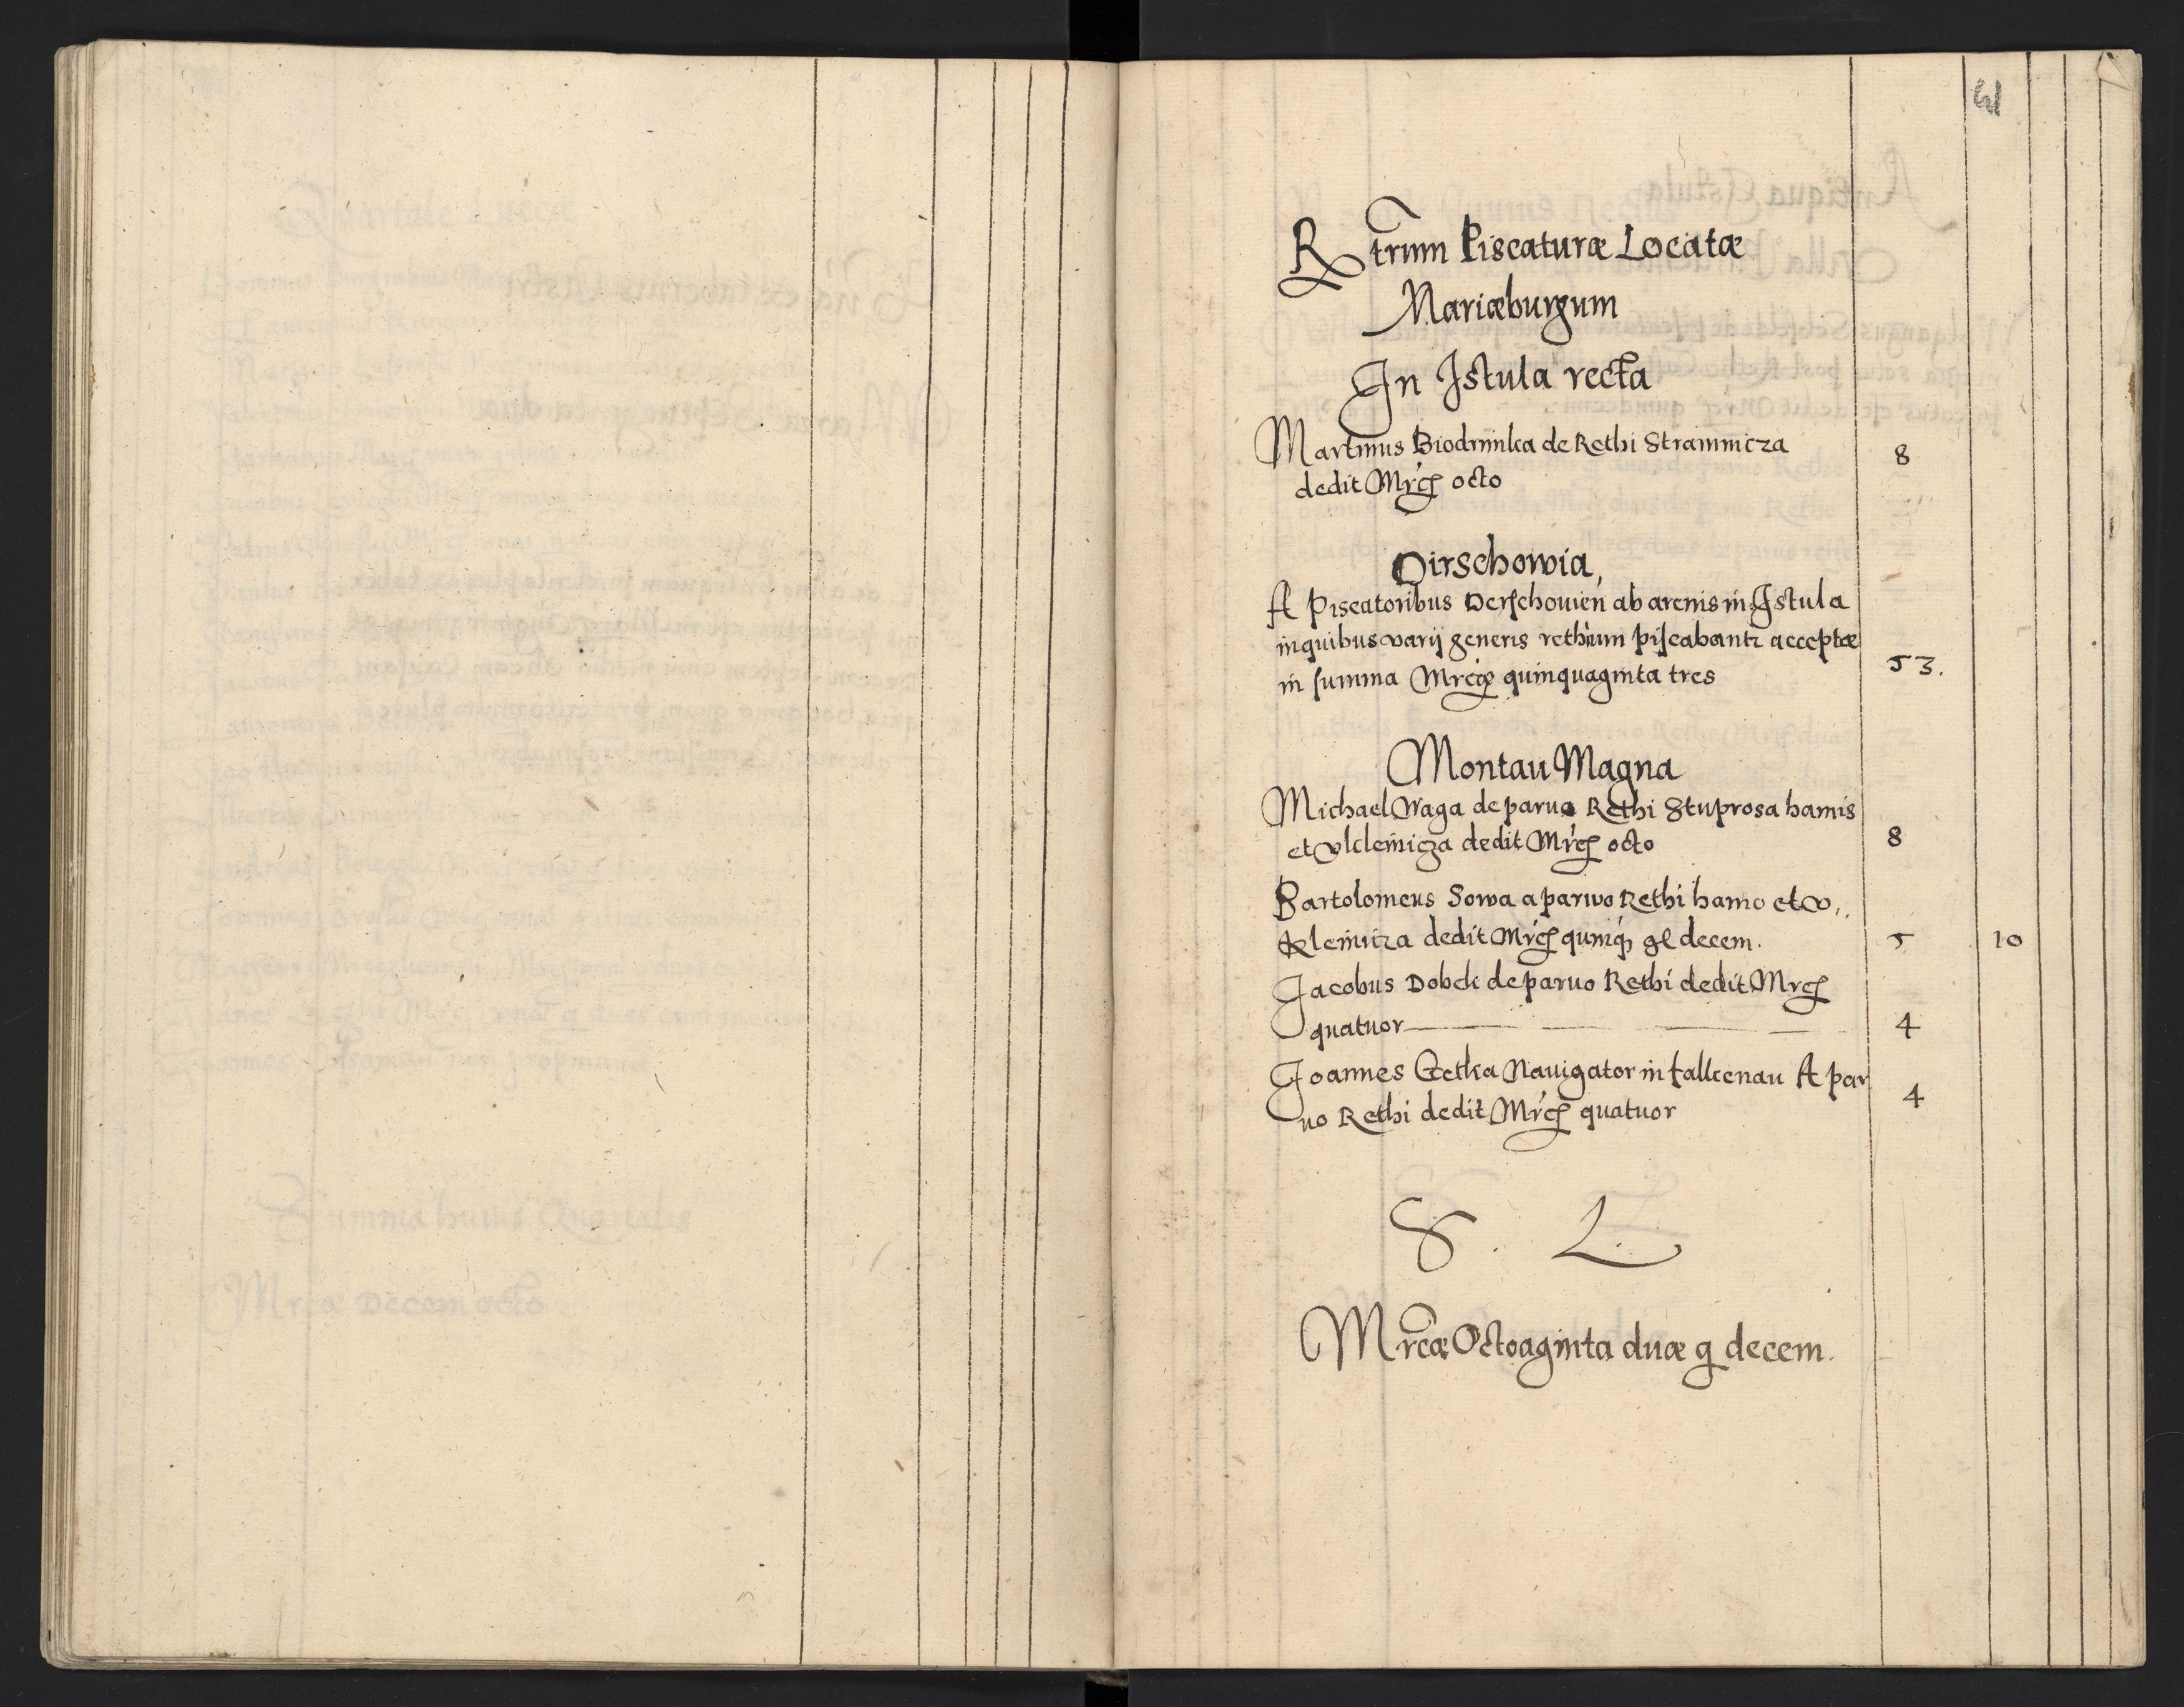 41
Rtrum Piscaturæ Locatæ
Mariæburgum
In Istula recta
Martinus Biodrinka de Rethi Strannicza
dedit Mrcs octo 8
Dirschowia,
A Piscatoribus Derschouien ab arenis in Istula
in quibus varij generis rethium piscabantr acceptæ
in summa Mrcæ quinquaginta tres 53.
Montau Magna
Michael Waga de paruo Rethi Stuprosa hamis
et vkleinicza dedit Mrcs octo 8
Bartolomeus Sowa a paruo Rethi hamo et v,,
kleinicza dedit Mrcs quinq; gl decem. 5 10
Jacobus Dobek de paruo Rethi dedit Mrcs
quatuor 4
Joannes Getka Nauigator in falkenau A par
uo Rethi dedit Mrcs quatuor 4
S. L.
Mrcæ Octoaginta duæ g decem.